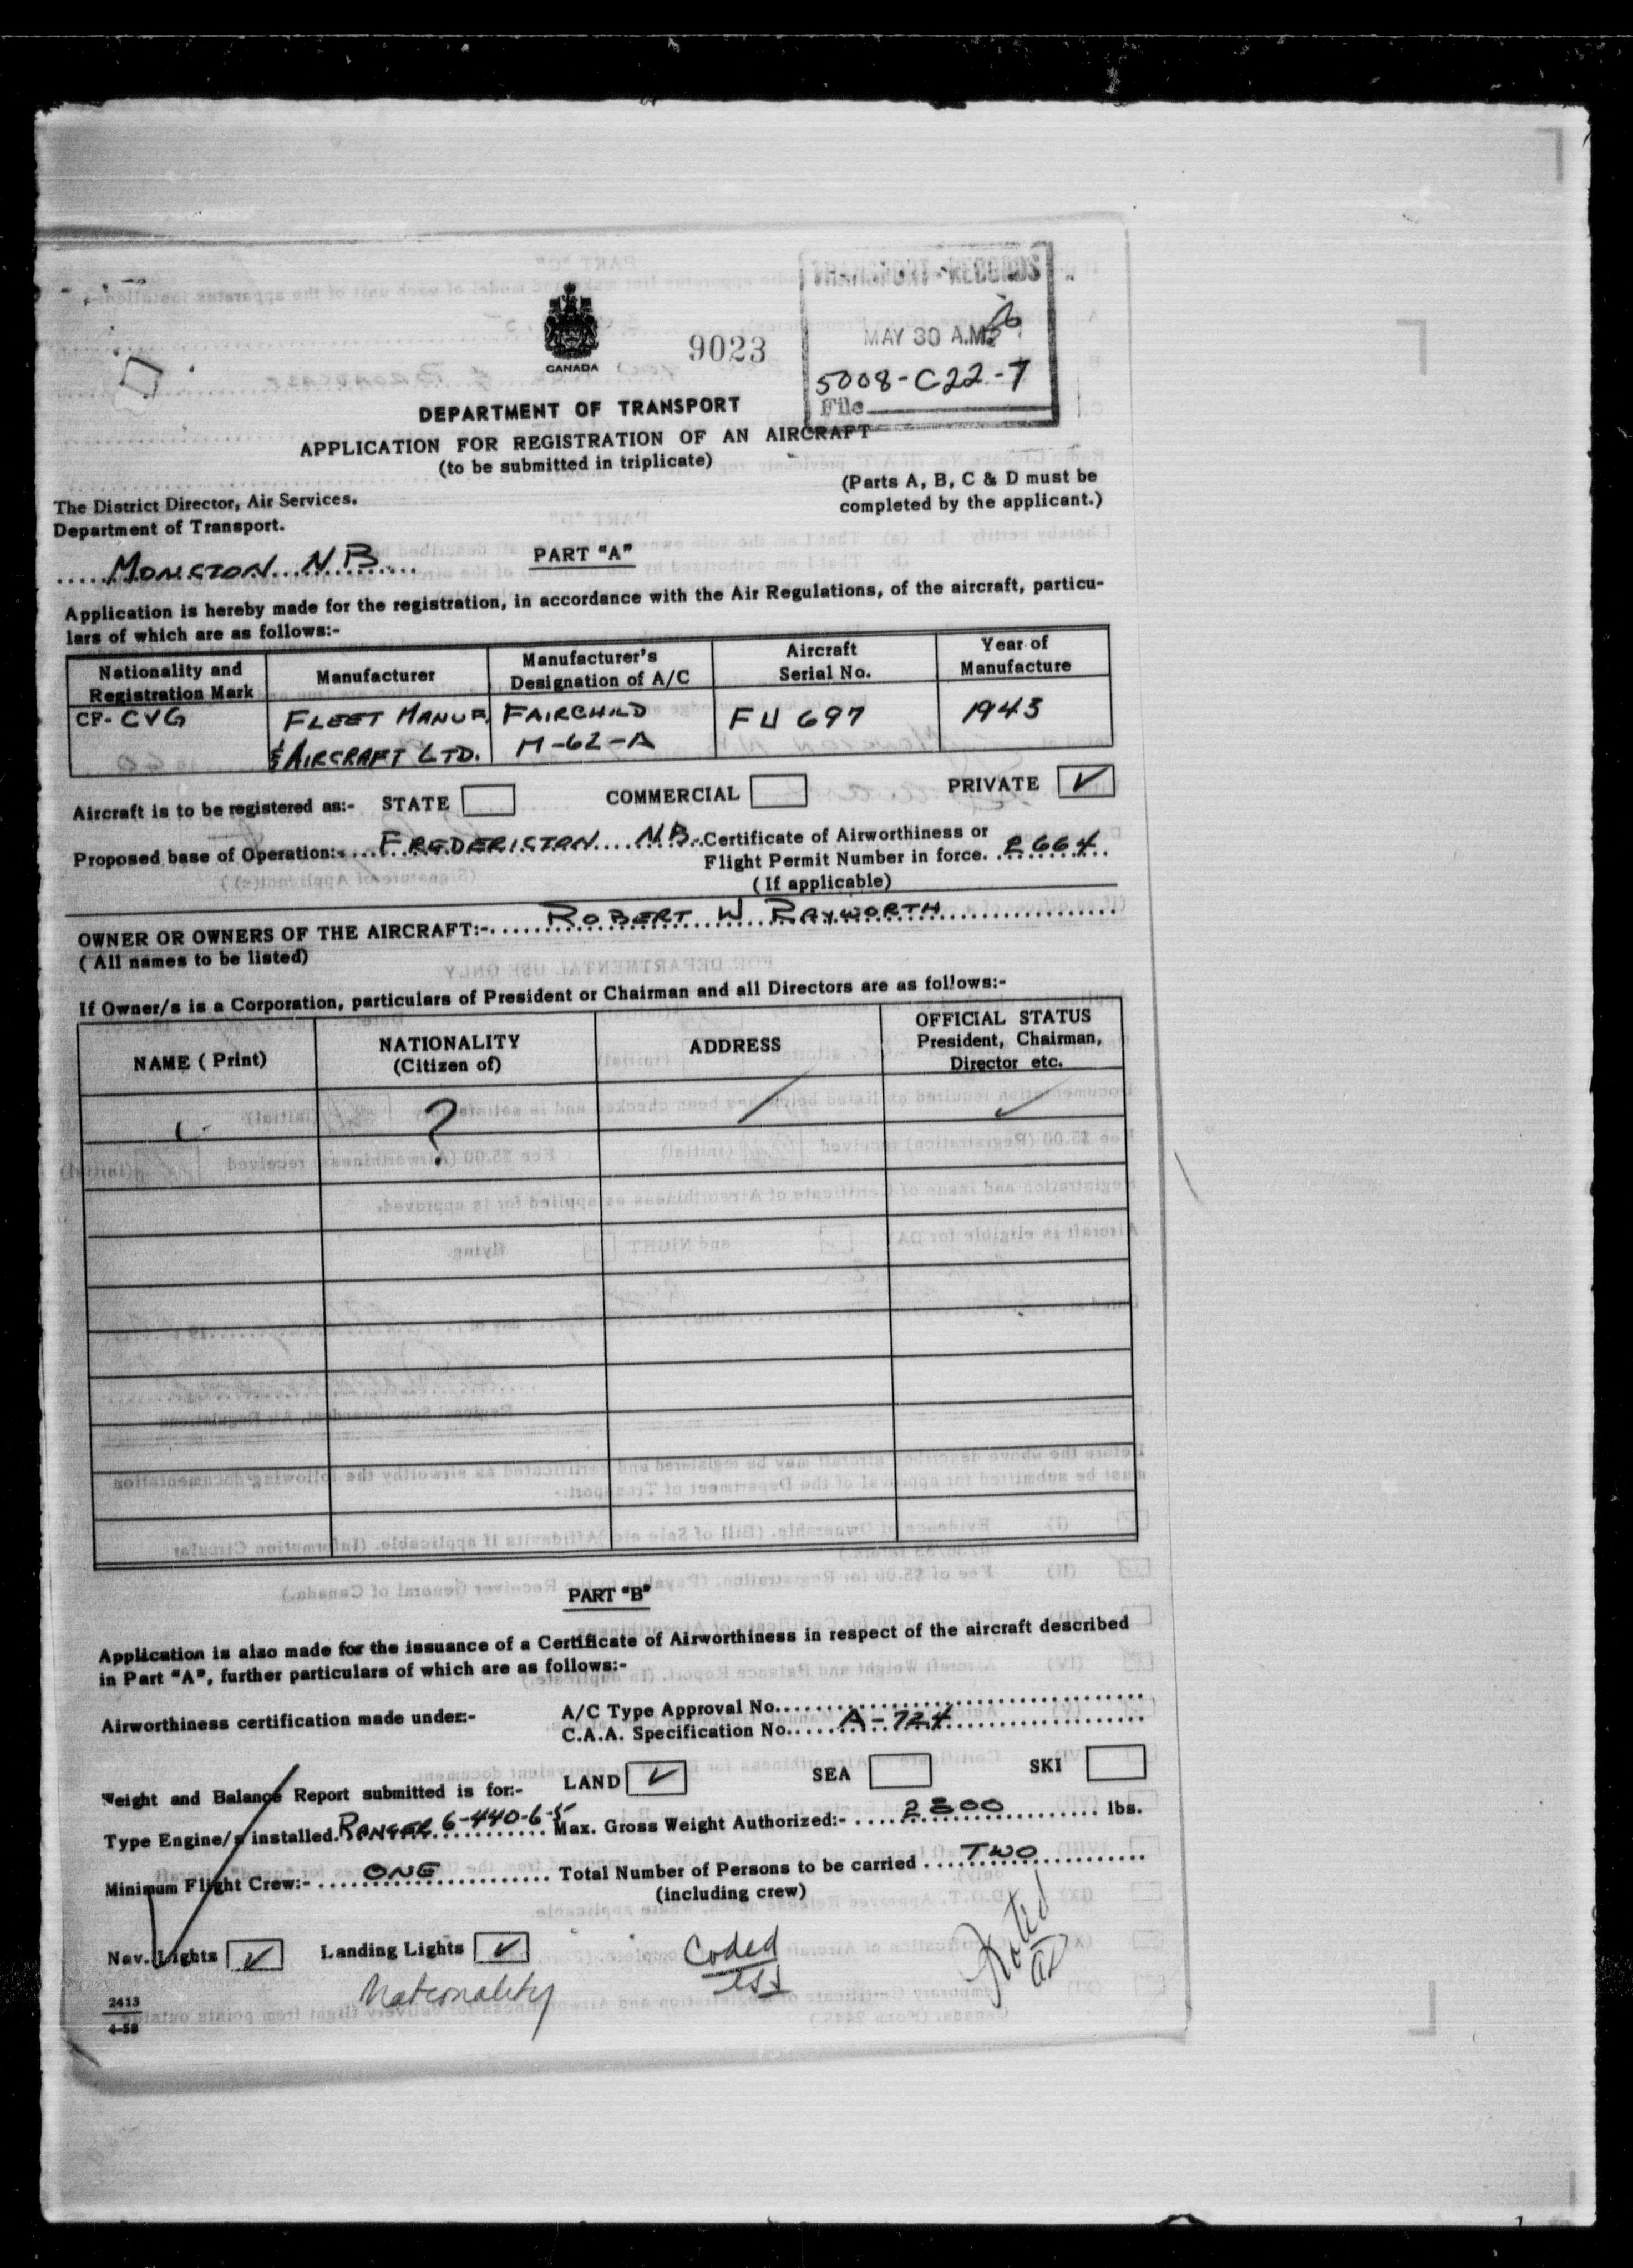 TRANSPORT - RECORDS
MAY 30 A.M.
9023
5008-C22-7
File
CANADA
DEPARTMENT OF TRANSPORT
APPLICATION FOR REGISTRATION OF AN AIRCRAFT
(to be submitted in triplicate)
(Parts A, B, C & D must be
completed by the applicant.)
The District Director, Air Services.
Department of Transport.
MONCTON N.B
PART "A"
Application is hereby made for the registration, in accordance with the Air Regulations, of the aircraft, particu-
lars of which are as follows:-
Nationality and Registration Mark Manufacturer Manufacturer's Designation of A/C Aircraft Serial No. Year of Manufacture
CF- CVG FLEET MANUF. FAIRCHILD FU 697 1943
& AIRCRAFT LTD. M-62-A
Aircraft is to be registered as:- STATE COMMERCIAL PRIVATE ✓
Proposed base of Operation:- FREDERICTON N.B. Certificate of Airworthiness or
Flight Permit Number in force. 2664
(If applicable)
OWNER OR OWNERS OF THE AIRCRAFT:- ROBERT W RAYWORTH
(All names to be listed)
If Owner/s is a Corporation, particulars of President or Chairman and all Directors are as follows:-
NAME (Print) NATIONALITY (Citizen of) ADDRESS OFFICIAL STATUS President, Chairman, Director etc.
?
PART "B"
Application is also made for the issuance of a Certificate of Airworthiness in respect of the aircraft described
in Part "A", further particulars of which are as follows:-
Airworthiness certification made under:- A/C Type Approval No.
C.A.A. Specification No. A-724
Weight and Balance Report submitted is for:- LAND ✓ SEA SKI
Type Engine/s installed. RANGER 6-440-6-5 Max. Gross Weight Authorized:- 2800 lbs.
Minimum Flight Crew:- ONE Total Number of Persons to be carried TWO
(including crew)
Nav. Lights ✓ Landing Lights ✓
Coded
Noted
Nationality
2413
4-58